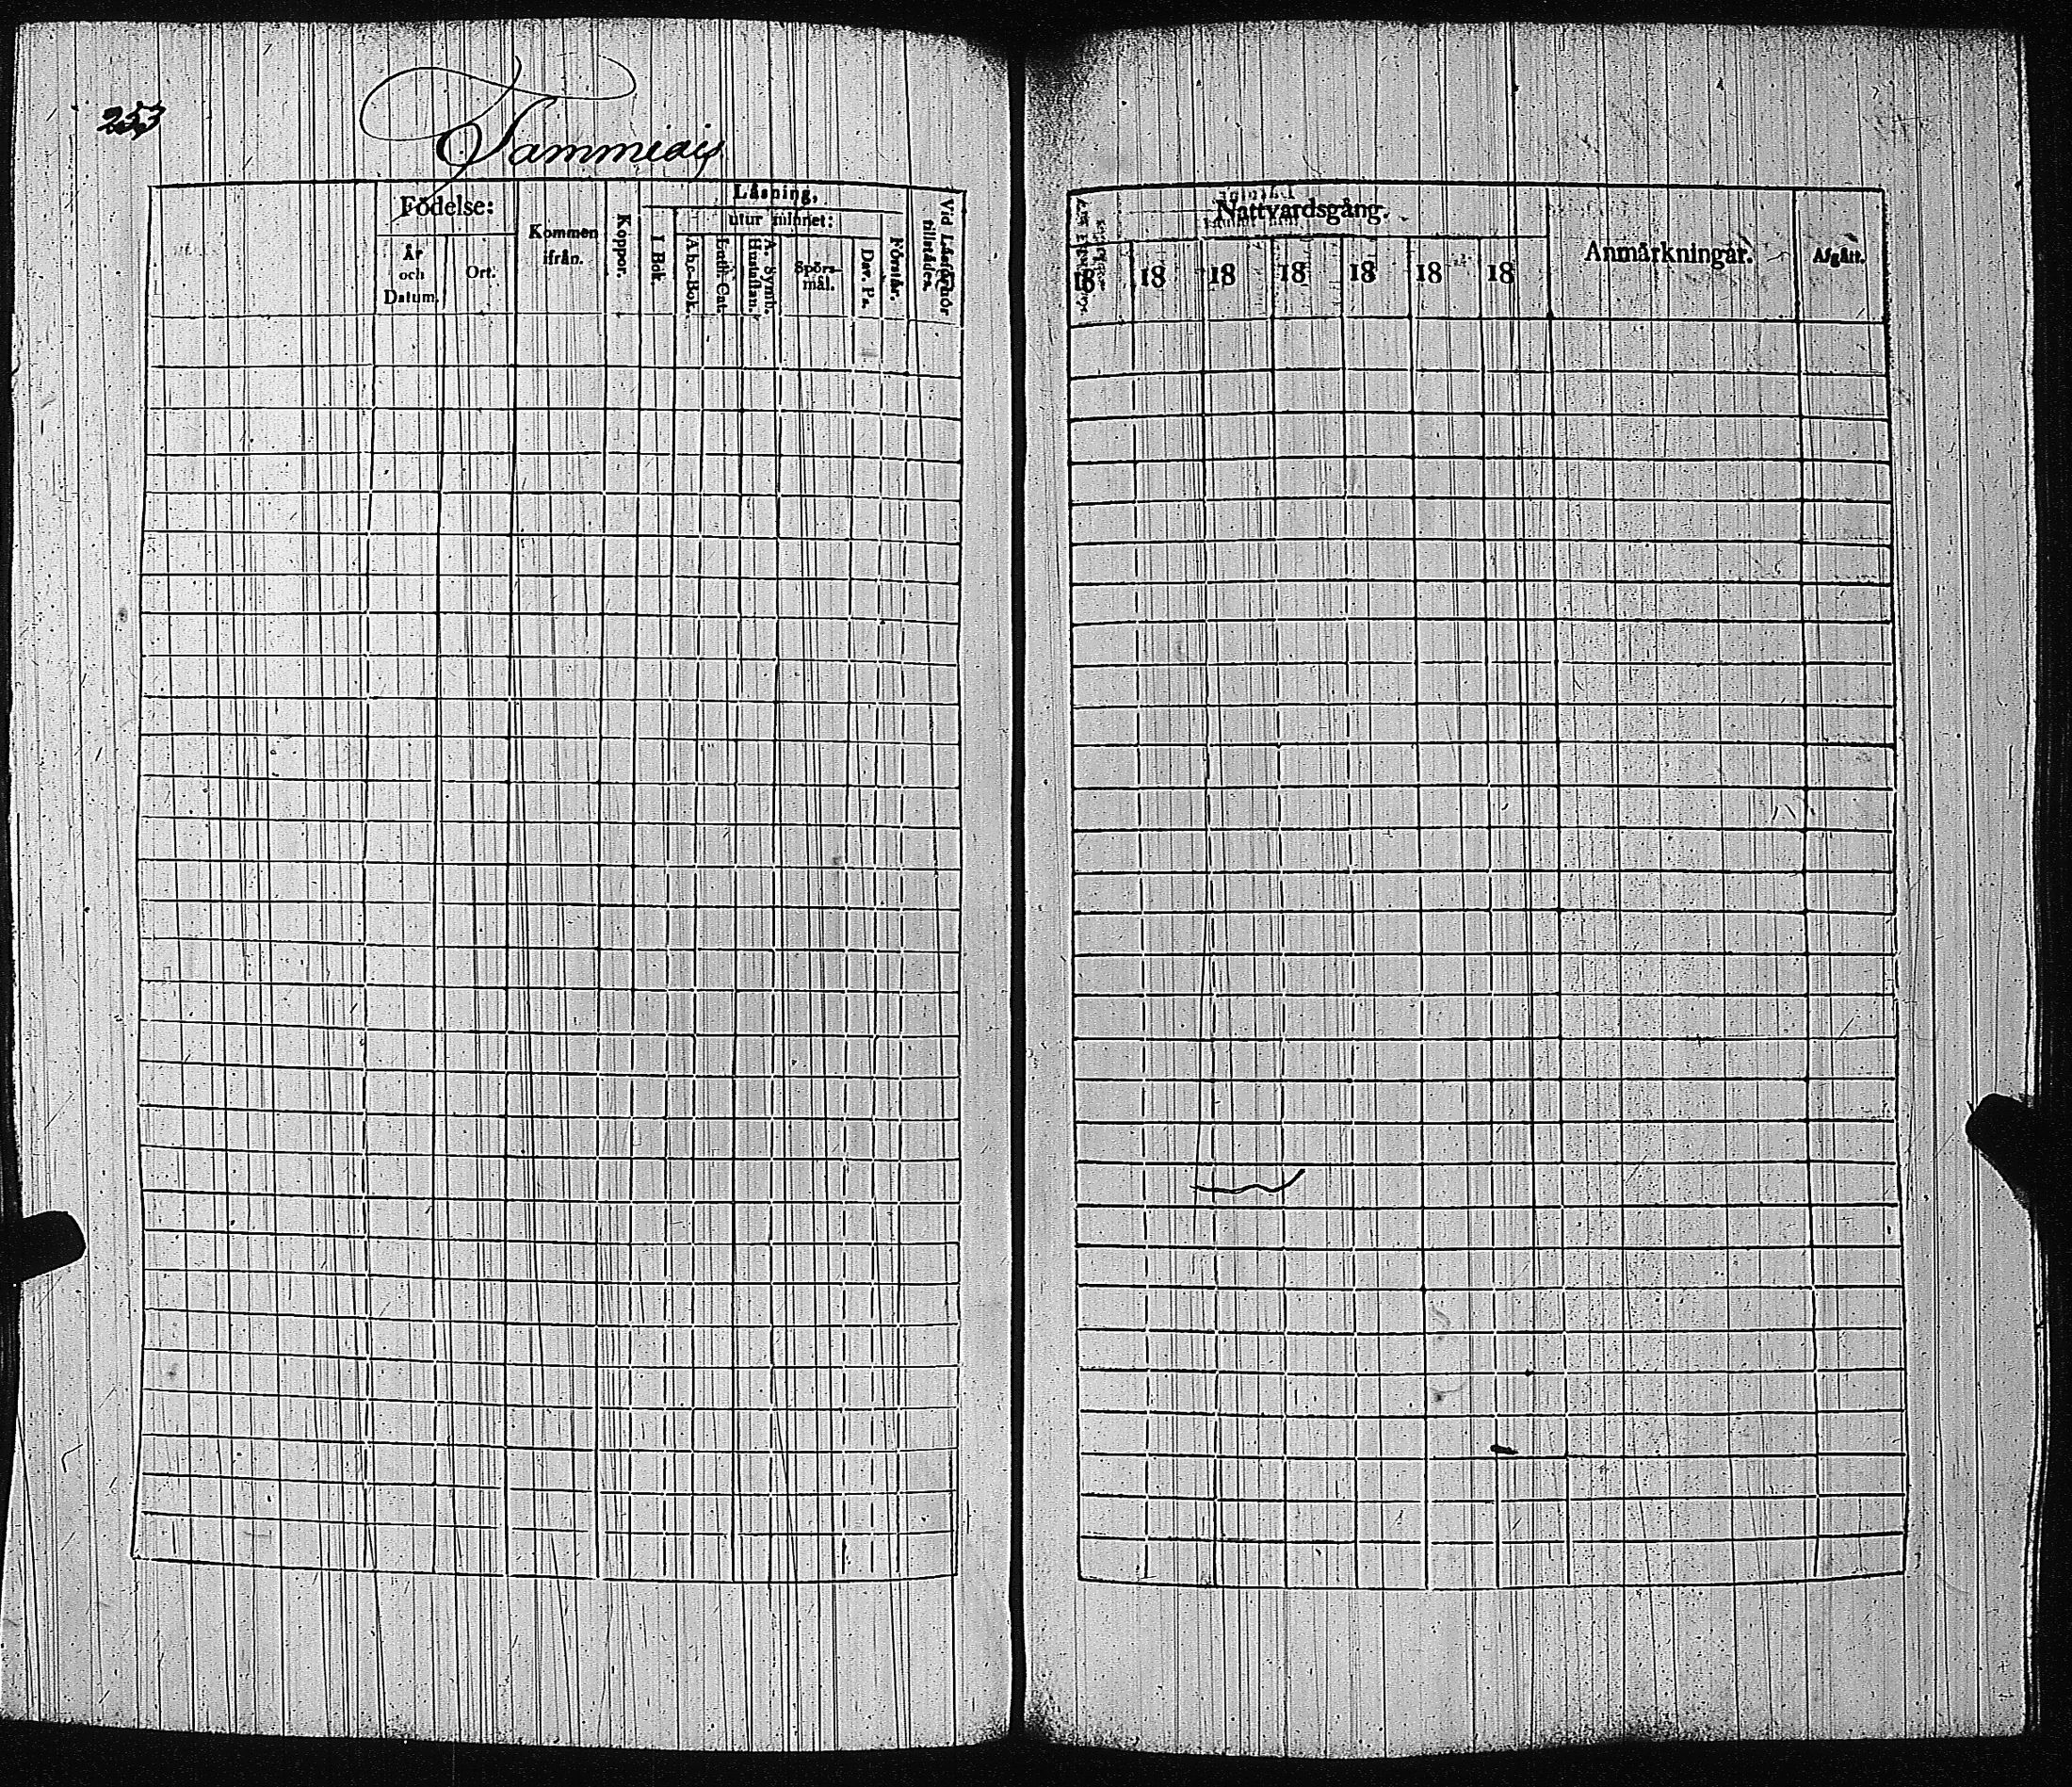 253
Tammiais
Födelse:
År och Datum.
Ort.
Kommen ifrån.
Koppor.
Läsning,
I Bok.
utur minnet:
A-b-c-Bok.
Luth. Cat.
A. Symb. Hustaflan.
Spörs-mål.
Dav. Ps.
Förstår.
Vid Läseförhör tillstädes.
Nattvardsgång.
18 18 18 18 18 18 18
Anmärkningar.
Afgått.